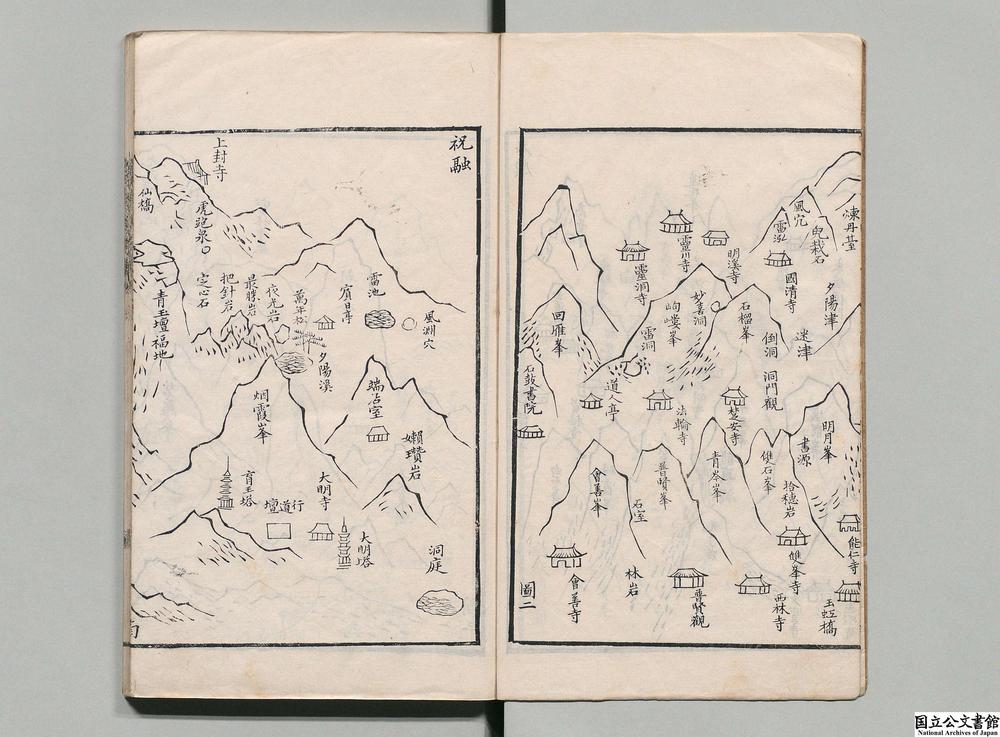 煉丹臺
夕陽津
明月峯
能仁寺
玉虹橋
風穴
雷泓
國清寺
迷津
書源
拾穗岩
雙峯寺
西林寺
明溪寺
石榴峯
倒洞
洞門觀
雙石峯
靈川寺
妙喜洞
楚安寺
青岑峯
普賢觀
靈洞寺
岣嶁峯
雷洞
法輪寺
普賢峯
石室
林岩
道人亭
會善峯
會善寺
回雁峯
石鼓書院
圖二
祝融
風淵穴
雷池
賓日亭
懶瓚岩
洞庭
夕陽溪
大明寺
大明塔
萬年松
夜光岩
最勝岩
把針岩
定心石
烟霞峯
行道壇
育王塔
上封寺
虎跑泉
仙橋
青玉壇福地
国立公文書館
National Archives of Japan